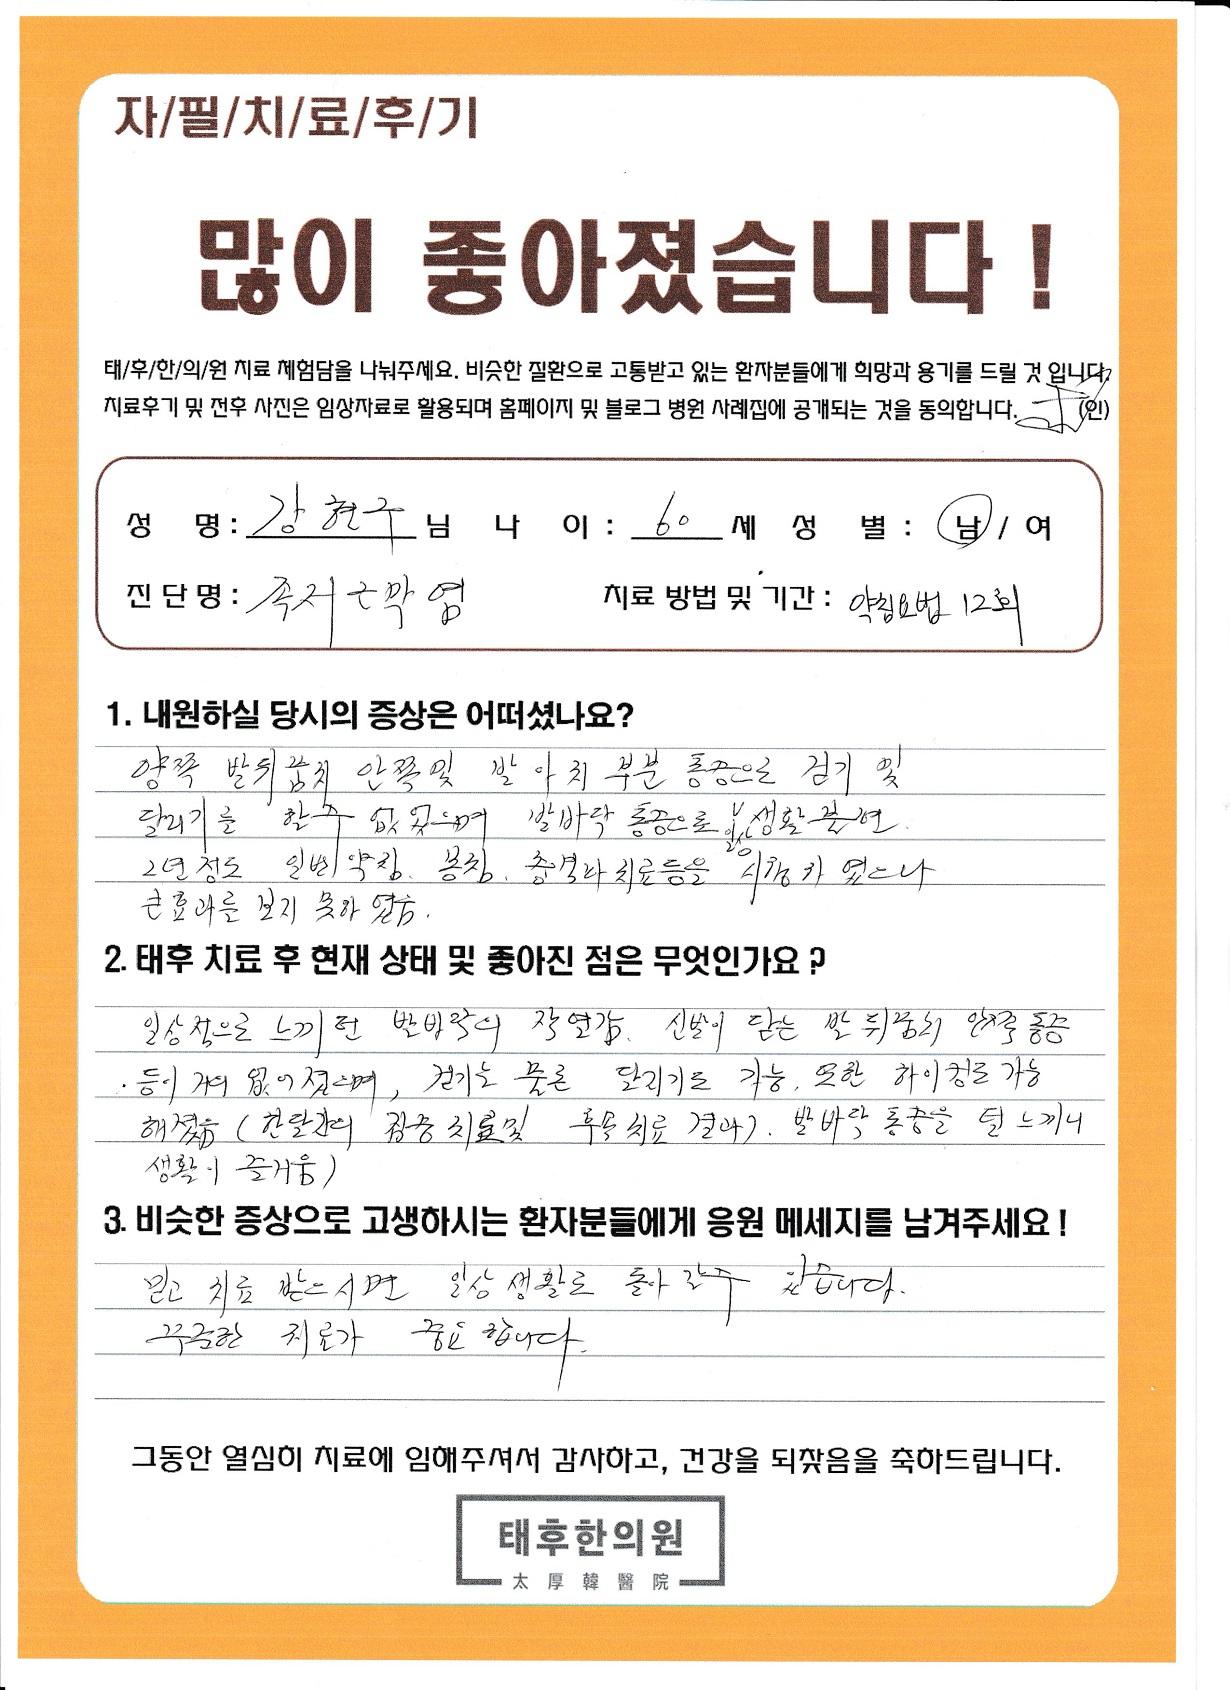 자/필/치/료/후/기
많이 좋아졌습니다 !
태/후/한/의/원 치료 체험담을 나눠주세요. 비슷한 질환으로 고통받고 있는 환자분들에게 희망과 용기를 드릴 것 입니다.
치료후기 및 전후 사진은 임상자료로 활용되며 홈페이지 및 블로그 병원 사례집에 공개되는 것을 동의합니다. (인)
성 명 : 강현구 님 나 이 : 60 세 성 별 : 남 / 여
진단명 : 족저근막염 치료 방법 및 기간 : 약침요법 12회
1. 내원하실 당시의 증상은 어떠셨나요?
양쪽 발뒤꿈치 안쪽 및 발 아치 부분 통증으로 걷기 및
달리기를 할수 없었으며 발바닥 통증으로 일상생활 불편.
2년정도 일반약침. 봉침. 충격파치료등을 시행하였으나
큰효과를 보지 못하였음.
2. 태후 치료 후 현재 상태 및 좋아진 점은 무엇인가요 ?
일상적으로 느끼던 발바닥의 작열감. 신발이 닿는 발뒤꿈치 안쪽 통증
등이 거의 없어졌으며, 걷기는 물론 달리기도 가능. 또한 하이킹도 가능
해졌음 (한달간의 집중치료및 후속치료 결과). 발바닥 통증을 덜 느끼니
생활이 즐거움)
3. 비슷한 증상으로 고생하시는 환자분들에게 응원 메세지를 남겨주세요 !
믿고 치료 받으시면 일상생활로 돌아 갈수 있습니다.
꾸준한 치료가 중요 합니다.
그동안 열심히 치료에 임해주셔서 감사하고, 건강을 되찾음을 축하드립니다.
태후한의원
太厚韓醫院